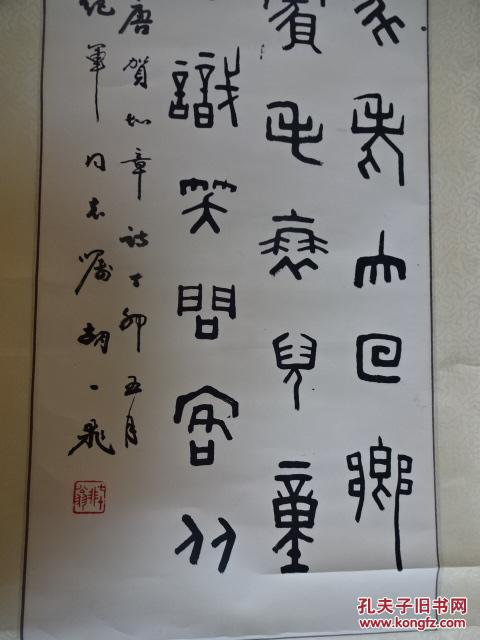 家老大回鄉
鬢毛衰兒童
識笑問客从
唐賀知章詩丁卯五月
紀軍同志囑胡一飛
孔夫子旧书网
www.kongfz.com